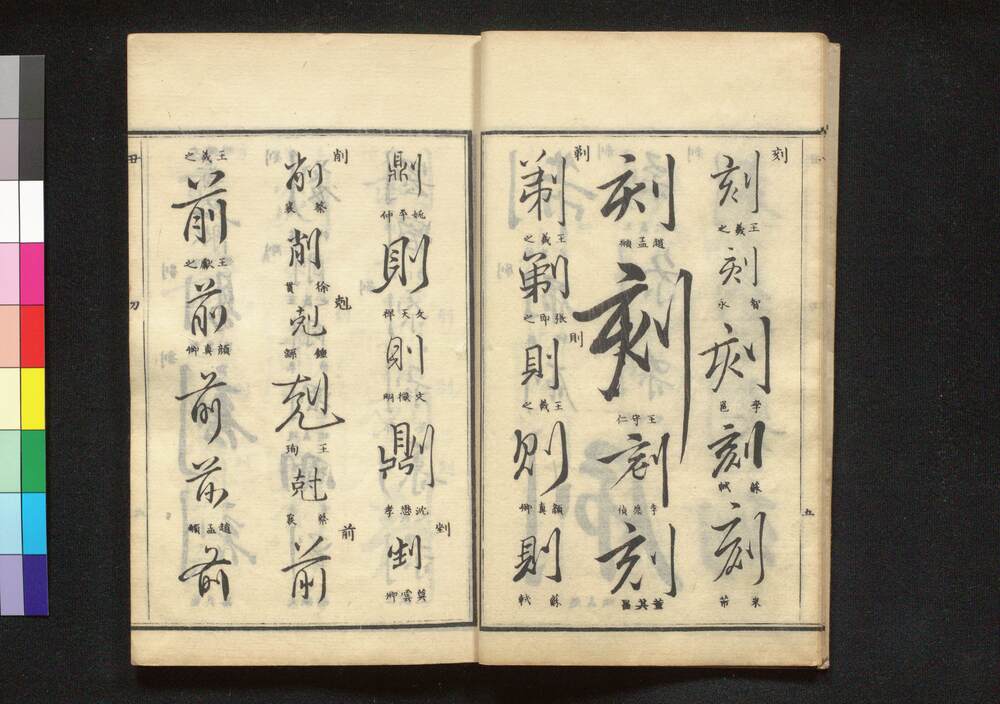 刻
刻
王羲之
刻
智永
刻
李邕
刻
蘇軾
刻
米芾
刻
趙孟頫
刻
王守仁
刻
李應禎
刻
董其昌
剃
剃
王羲之
剃
張即之
則
則
王羲之
則
顏真卿
則
蘇軾
五
姚平仲
則
文天祥
則
文徵明
沈懋孝
莫雲卿
削
削
蔡襄
削
徐賁
剋
剋
鍾繇
剋
王珣
剋
蔡襄
前
前
王羲之
前
王獻之
前
顏真卿
前
前
趙孟頫
前
刀